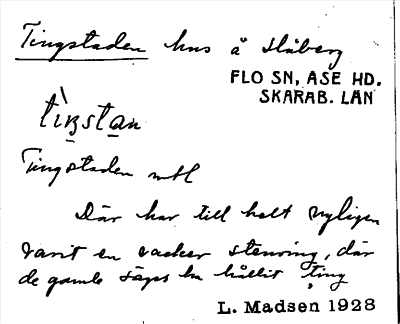 Tingstaden hus å Håberg
FLO SN, ASE HD.
SKARAB. LÄN
tìŋstan
Tingstaden mtl
Där har till helt nyligen
varit en vacker stenring, där
de gamle säges ha hållit "ting
L. Madsen 1928